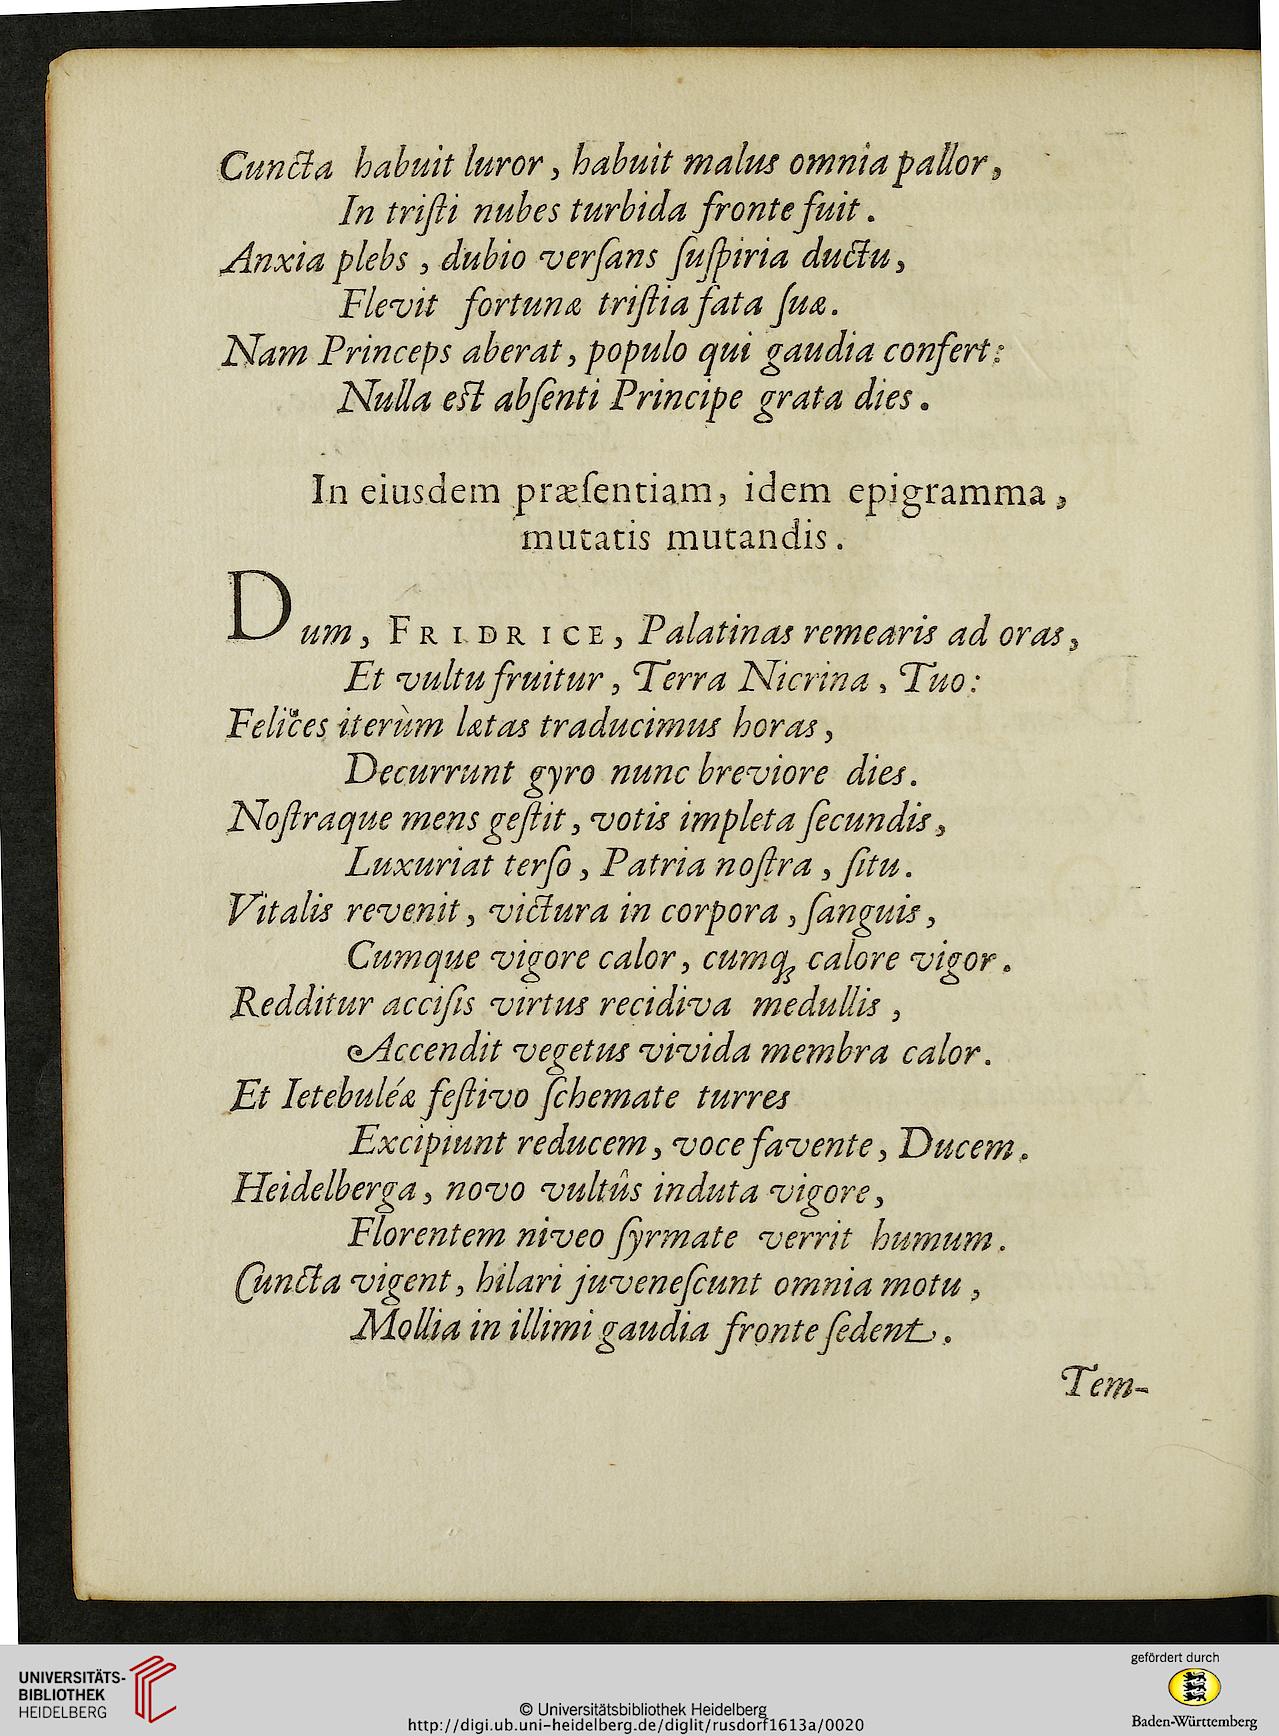 Cuncta habuit luror, habuit malus omnia pallor,
In triſti nubes turbida fronte fuit.
Anxia plebs, dubio verſans ſuſpiria ductu,
Flevit fortunæ triſtia fata ſuæ.
Nam Princeps aberat, populo qui gaudia confert:
Nulla est abſenti Principe grata dies.
In eiusdem præſentiam, idem epigramma,
mutatis mutandis.
Dum, FRIDRICE, Palatinas remearis ad oras,
Et vultu fruitur, Terra Nicrina, Tuo:
Felices iterùm lætas traducimus horas,
Decurrunt gyro nunc breviore dies.
Noſtraque mens geſtit, votis impleta ſecundis,
Luxuriat terſo, Patria noſtra, ſitu.
Vitalis revenit, victura in corpora, ſanguis,
Cumque vigore calor, cumq́; calore vigor.
Redditur acciſis virtus recidiva medullis,
Accendit vegetus vivida membra calor.
Et Ietebuléæ feſtivo ſchemate turres
Excipiunt reducem, voce favente, Ducem.
Heidelberga, novo vultûs induta vigore,
Florentem niveo ſyrmate verrit humum.
Cuncta vigent, hilari juveneſcunt omnia motu,
Mollia in illimi gaudia fronte ſedent.
Tem-
UNIVERSITÄTS-
BIBLIOTHEK
HEIDELBERG
© Universitätsbibliothek Heidelberg
http://digi.ub.uni-heidelberg.de/diglit/rusdorf1613a/0020
gefördert durch
Baden-Württemberg